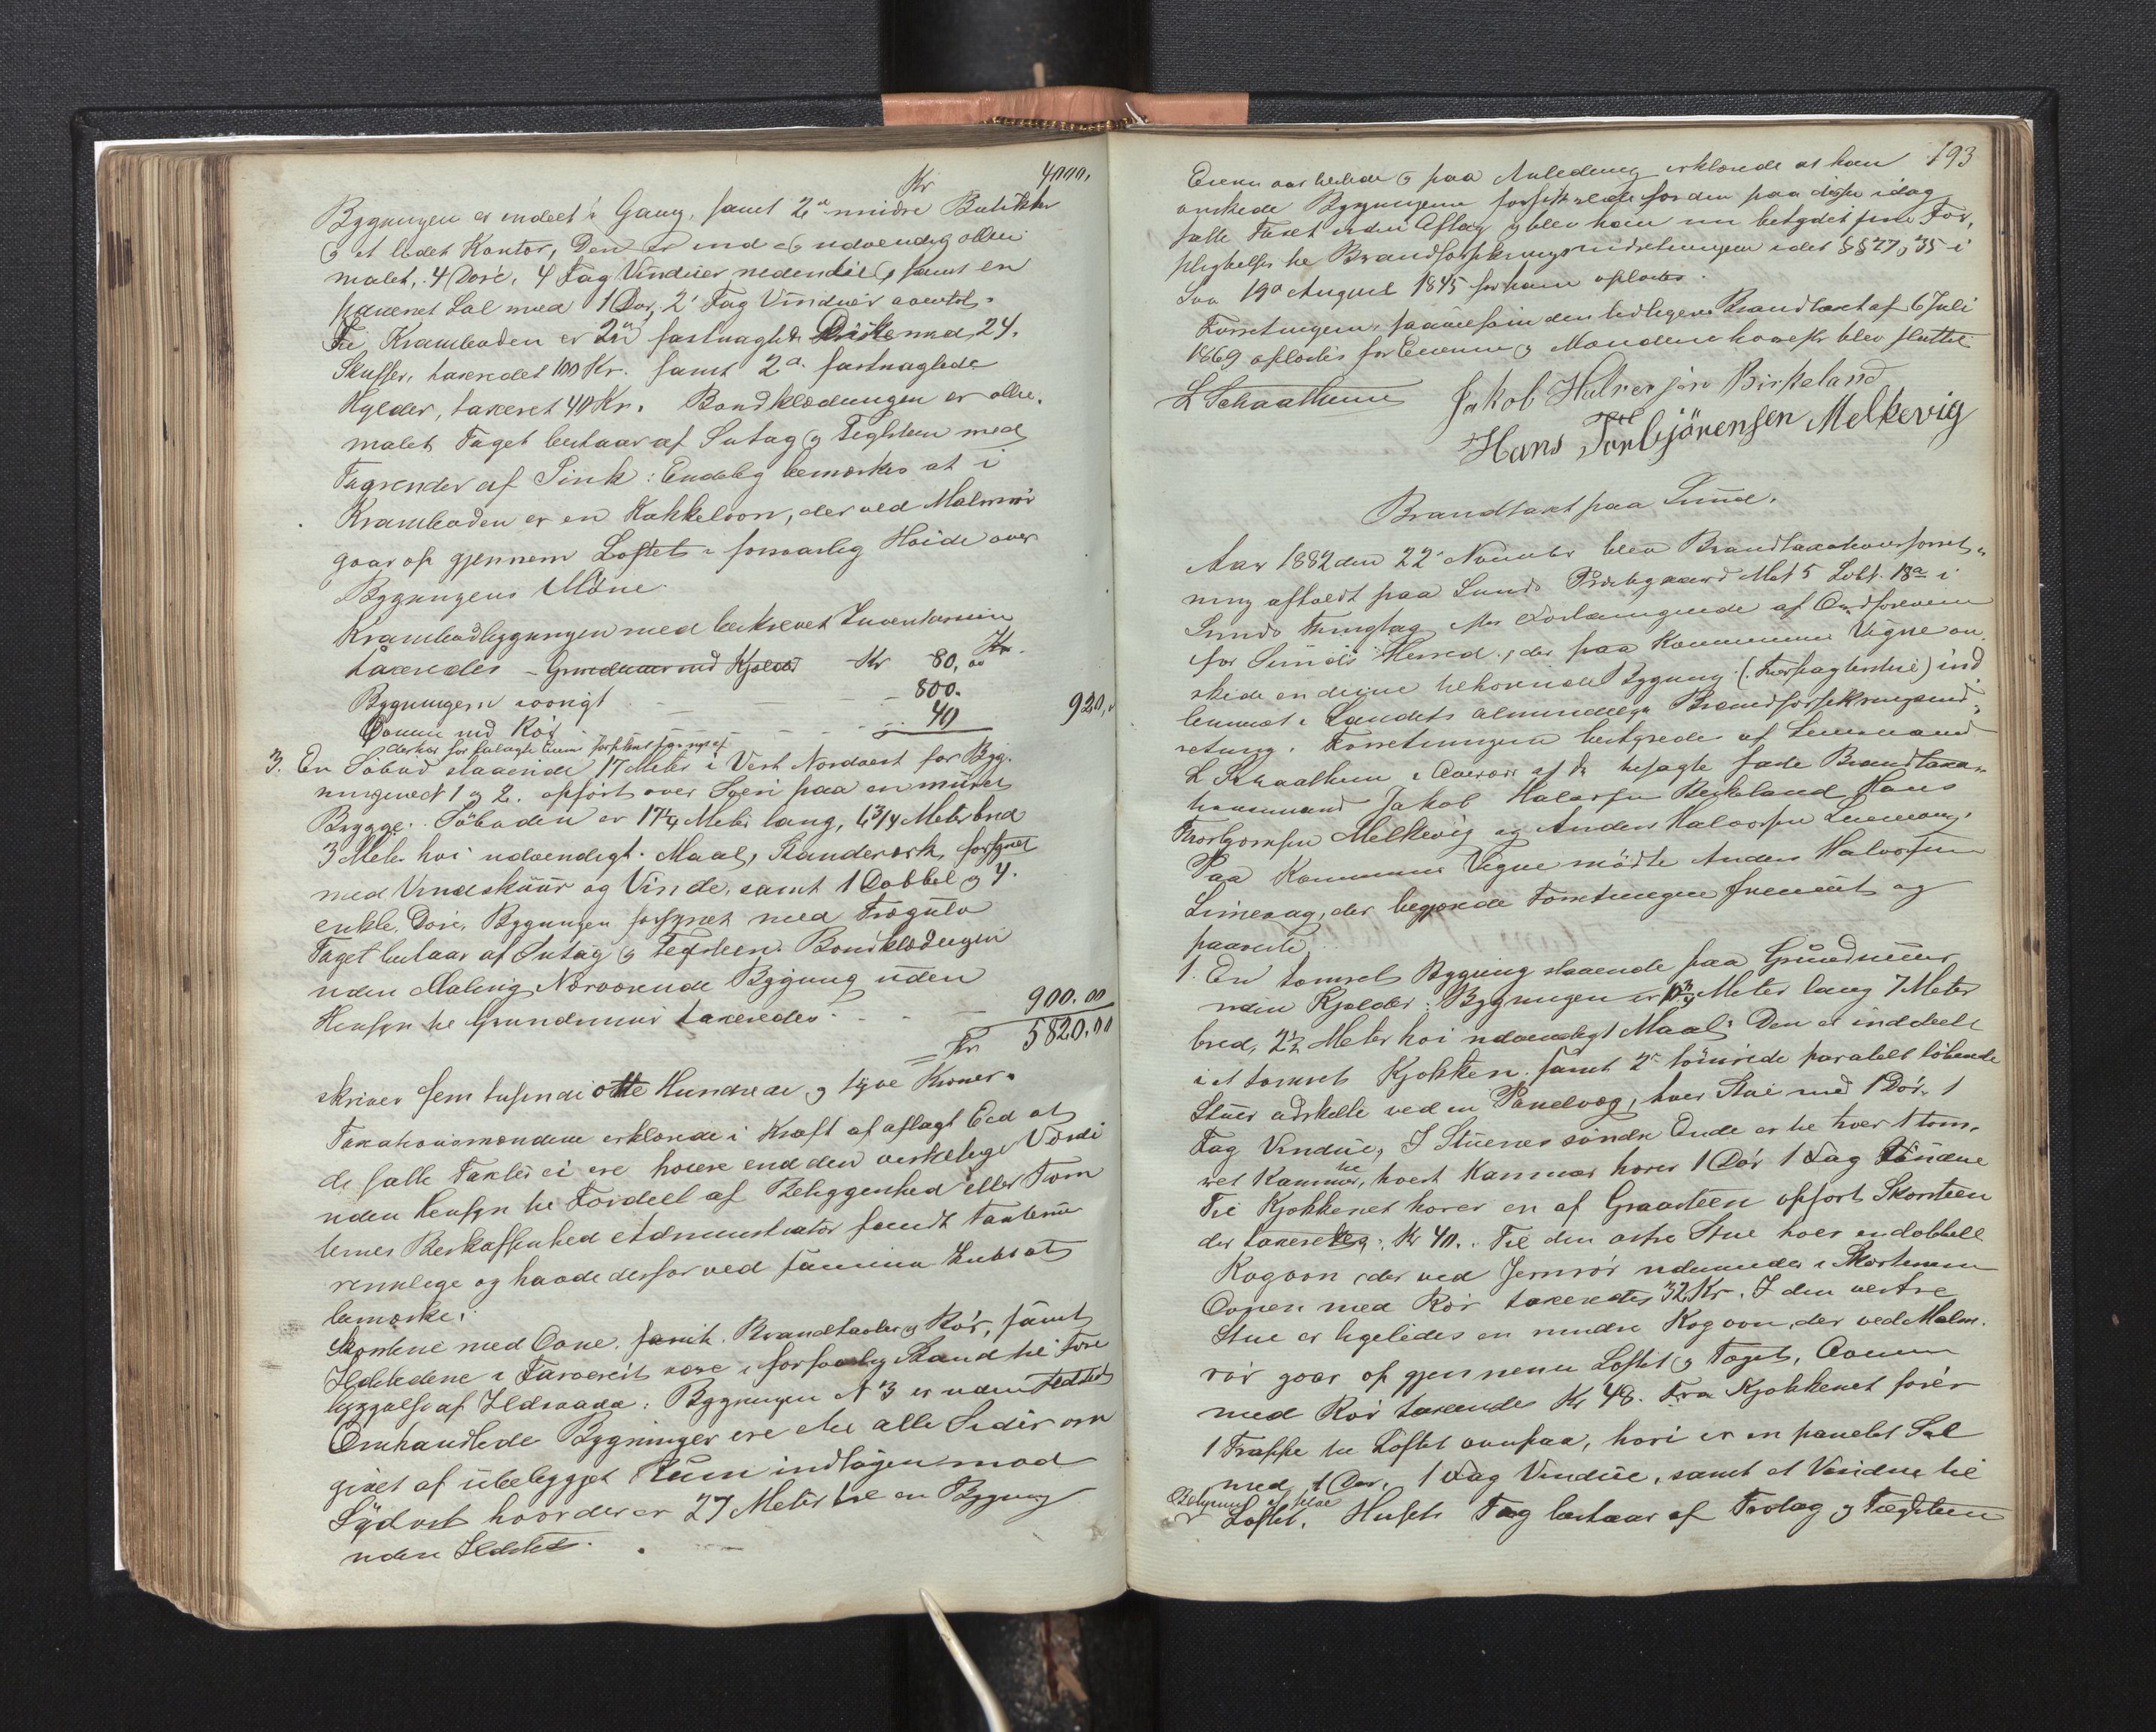 Kr 4000,
Bygningen er indeelt i Gang, samt 2de mindre Butikker
og et lidet Kontor, Den er ind og udvendig olie
malet, 4 Döre, 4 Fag Vinduer nedentil og samt en
panelet Sal med 1 Dör, 2 Fag Vinduer oventil.
Til Kramboden er 2de fastnaglede Diske med 24.
Skuffer, taxeredes 100 Kr. samt 2de fastnaglede
Hylder, taxeret 40 Kr. Bordklædningen er olie-
malet Taget bestaar af Sutag og Teglsteen med
Tagrender af Sink: Endelig bemærkes at i
Kramboden er en Kakkelovn, der ved Malmrör
gaar op gjennem Loftet i forsvarlig Höide over
Bygningens Möne.
Krambodbygningen med beskrevet Inventarium Kr.
taxeredes - Grundmur med Kjelder Kr 80,00
Bygningen iövrigt - - - 800.
Ovnen med Rör - - - 40 920,00
3. En Söbod staaende 17 Meter i Vest Nordvest for Byg-
ningerne No 1 og 2. opfört over Söen paa en muret
Brygge. Söboden er 17 1/4 Meter lang, 6 3/4 Meter bred
3 Meter höi udvendigt Maal, Standerværk forsynet
med Vindskuur og Vinde, samt 1 Dobbel og 4
enkle Döre, Bygningen forsynet med Trægulv
Taget bestaar af Sutag og Teglsteen. Bordklædningen
uden Maling, Nærværende Bygning uden
Hensyn til Grundmuur taxeredes - - - 900.00
Kr 5820,00
skriver fem tusinde otte Hundrede og tyve Kroner.
Taxationsmændene erklærede i Kraft af aflagt Eed at
de satte Taxter ei ere höiere end den verkelige Værdi
uden Hensyn til Fordeel af Beliggenhed eller Tom-
ternes Beskaffenhed Administrator fandt Taxterne
rimelige og havde derfor ved samme Intet at
bemærke.
Skorstene med Ovne, samt Brandtavler og Rör, samt
Ildstedene i Farveriet vare i forsvarlig Stand til Fore
byggelse af Ildsvaade: Bygningen No 3 er uden Ildsted
Omhandlede Bygninger ere til alle Sider om
givet af ubebygget Rum indtagen mod
Sydost hvor der er 27 Meter til en Bygning
uden Ildsted.
193
Eieren var tilstede og paa Anledning erklærede at han
önskede Bygningerne forsikrede for den paa disse idag
satte Taxt uden Afslag og blev han nu betydet sine For-
pligtelser til Brandforsikringsindretningen idet §§ 27 og 35 i
Lov 19de August 1845 for ham oplæstes.
Forretningen, saavelsom den tidligere Brandtaxt af 6 Juli
1869 oplæstes for Eieren og Mændene hvorefter blev sluttet
L Schaathun Jakob Halversen Birkeland
Hans Torbjörensen Melkevig
Brandtaxt paa Sunde.
Aar 1882 den 22 November blev Brandtaxationsforret-
ning afholdt paa Sunds Præstgaard Mat 5 Löbt. 18a i
Sunds Thinglag efter Forlangende af Ordföreren
for Sunds Herred, der paa Kommunens Vegne ön-
skede en denne tilhörende Bygning (Forpagterstue) ind
lemmet i Landets almindelige Brandforsikringsind-
retning. Forretningen bestyredes af Lensmand
L Schaathun i Overvær af de besagte faste Brandtaxa-
tionsmænd Jakob Halvorsen Birkeland, Hans
Thorbjornsen Melkevig og Anders Halvorsen
Paa Kommunens Vegne mödte Anders Halvorsen
der begjærede Forretningen fremmet og
paaviste
1. En tömret Bygning staaende paa Grundmuur
uden Kjelder: Bygningen er 10 3/4 Meter lang 7 Meter
bred, 2 1/2 Meter höi udvendigt Maal: Den er inddeelt
i et tömret Kjökken, samt 2de tömrede paralelt löbende
Stuer adskilte ved en Panelvæg, hver Stue med 1 Dör, 1
Fag Vindue, I Stuernes söndre Ende er til hver 1 töm-
ret Kammer, til hvert Kammer hörer 1 Dör 1 Fag Vindue
Til Kjökkenet hörer en af Graasteen opfört Skorsteen
der taxeredes: Kr 40. Til den östre Stue hörer en dobbelt
Kogovn der ved Jernrör udmunder i Skorstenen
Ovnen med Rör taxeredes 32 Kr. I den vestre
Stue er ligeledes en mindre Kogovn, der ved Malm-
rör gaar op gjennem Loftet og Taget, Ovnen
med Rör taxeredes Kr 48. Fra Kjökkenet förer
1 Trappe til Loftet ovenpaa, hvori er en panelet Sal
med 1 Dör, 1 Fag Vindue, samt et Vindue til
Loftet. Husets Tag bestaar af Trotag og Teglsteen